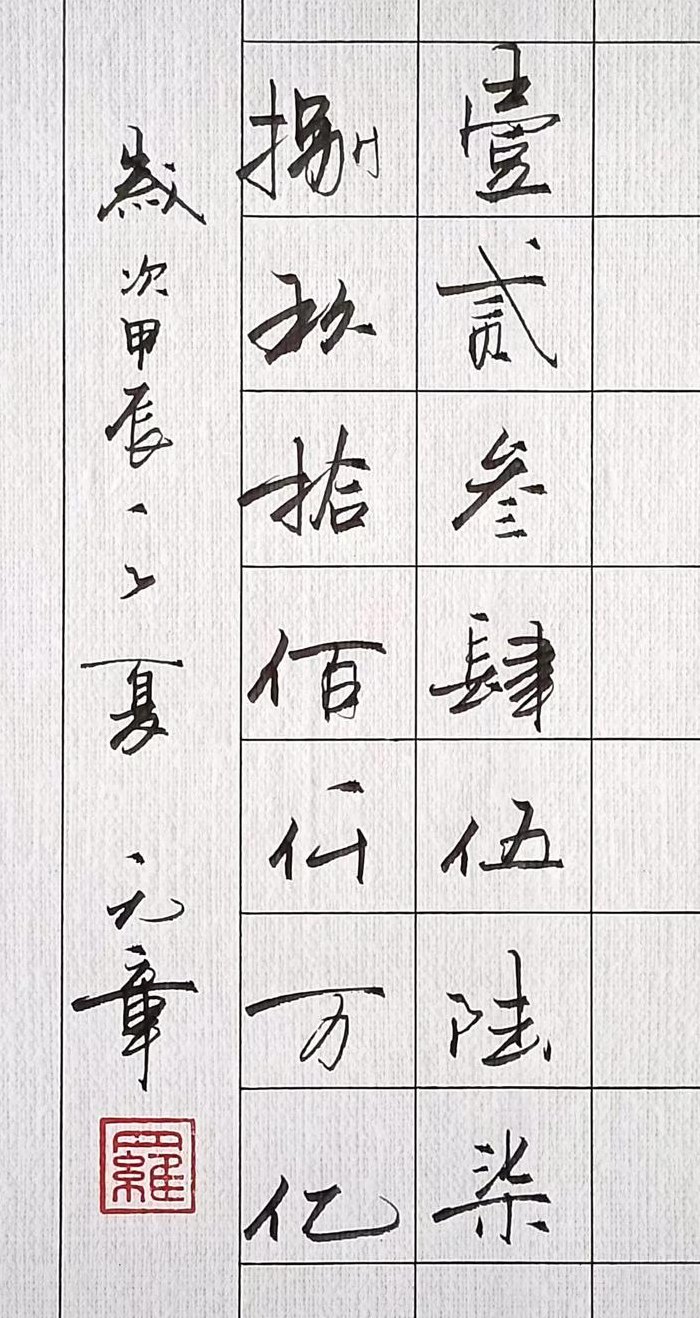 壹贰叁肆伍陆柒
捌玖拾佰仟万亿
歲次甲辰之夏 元章
羅